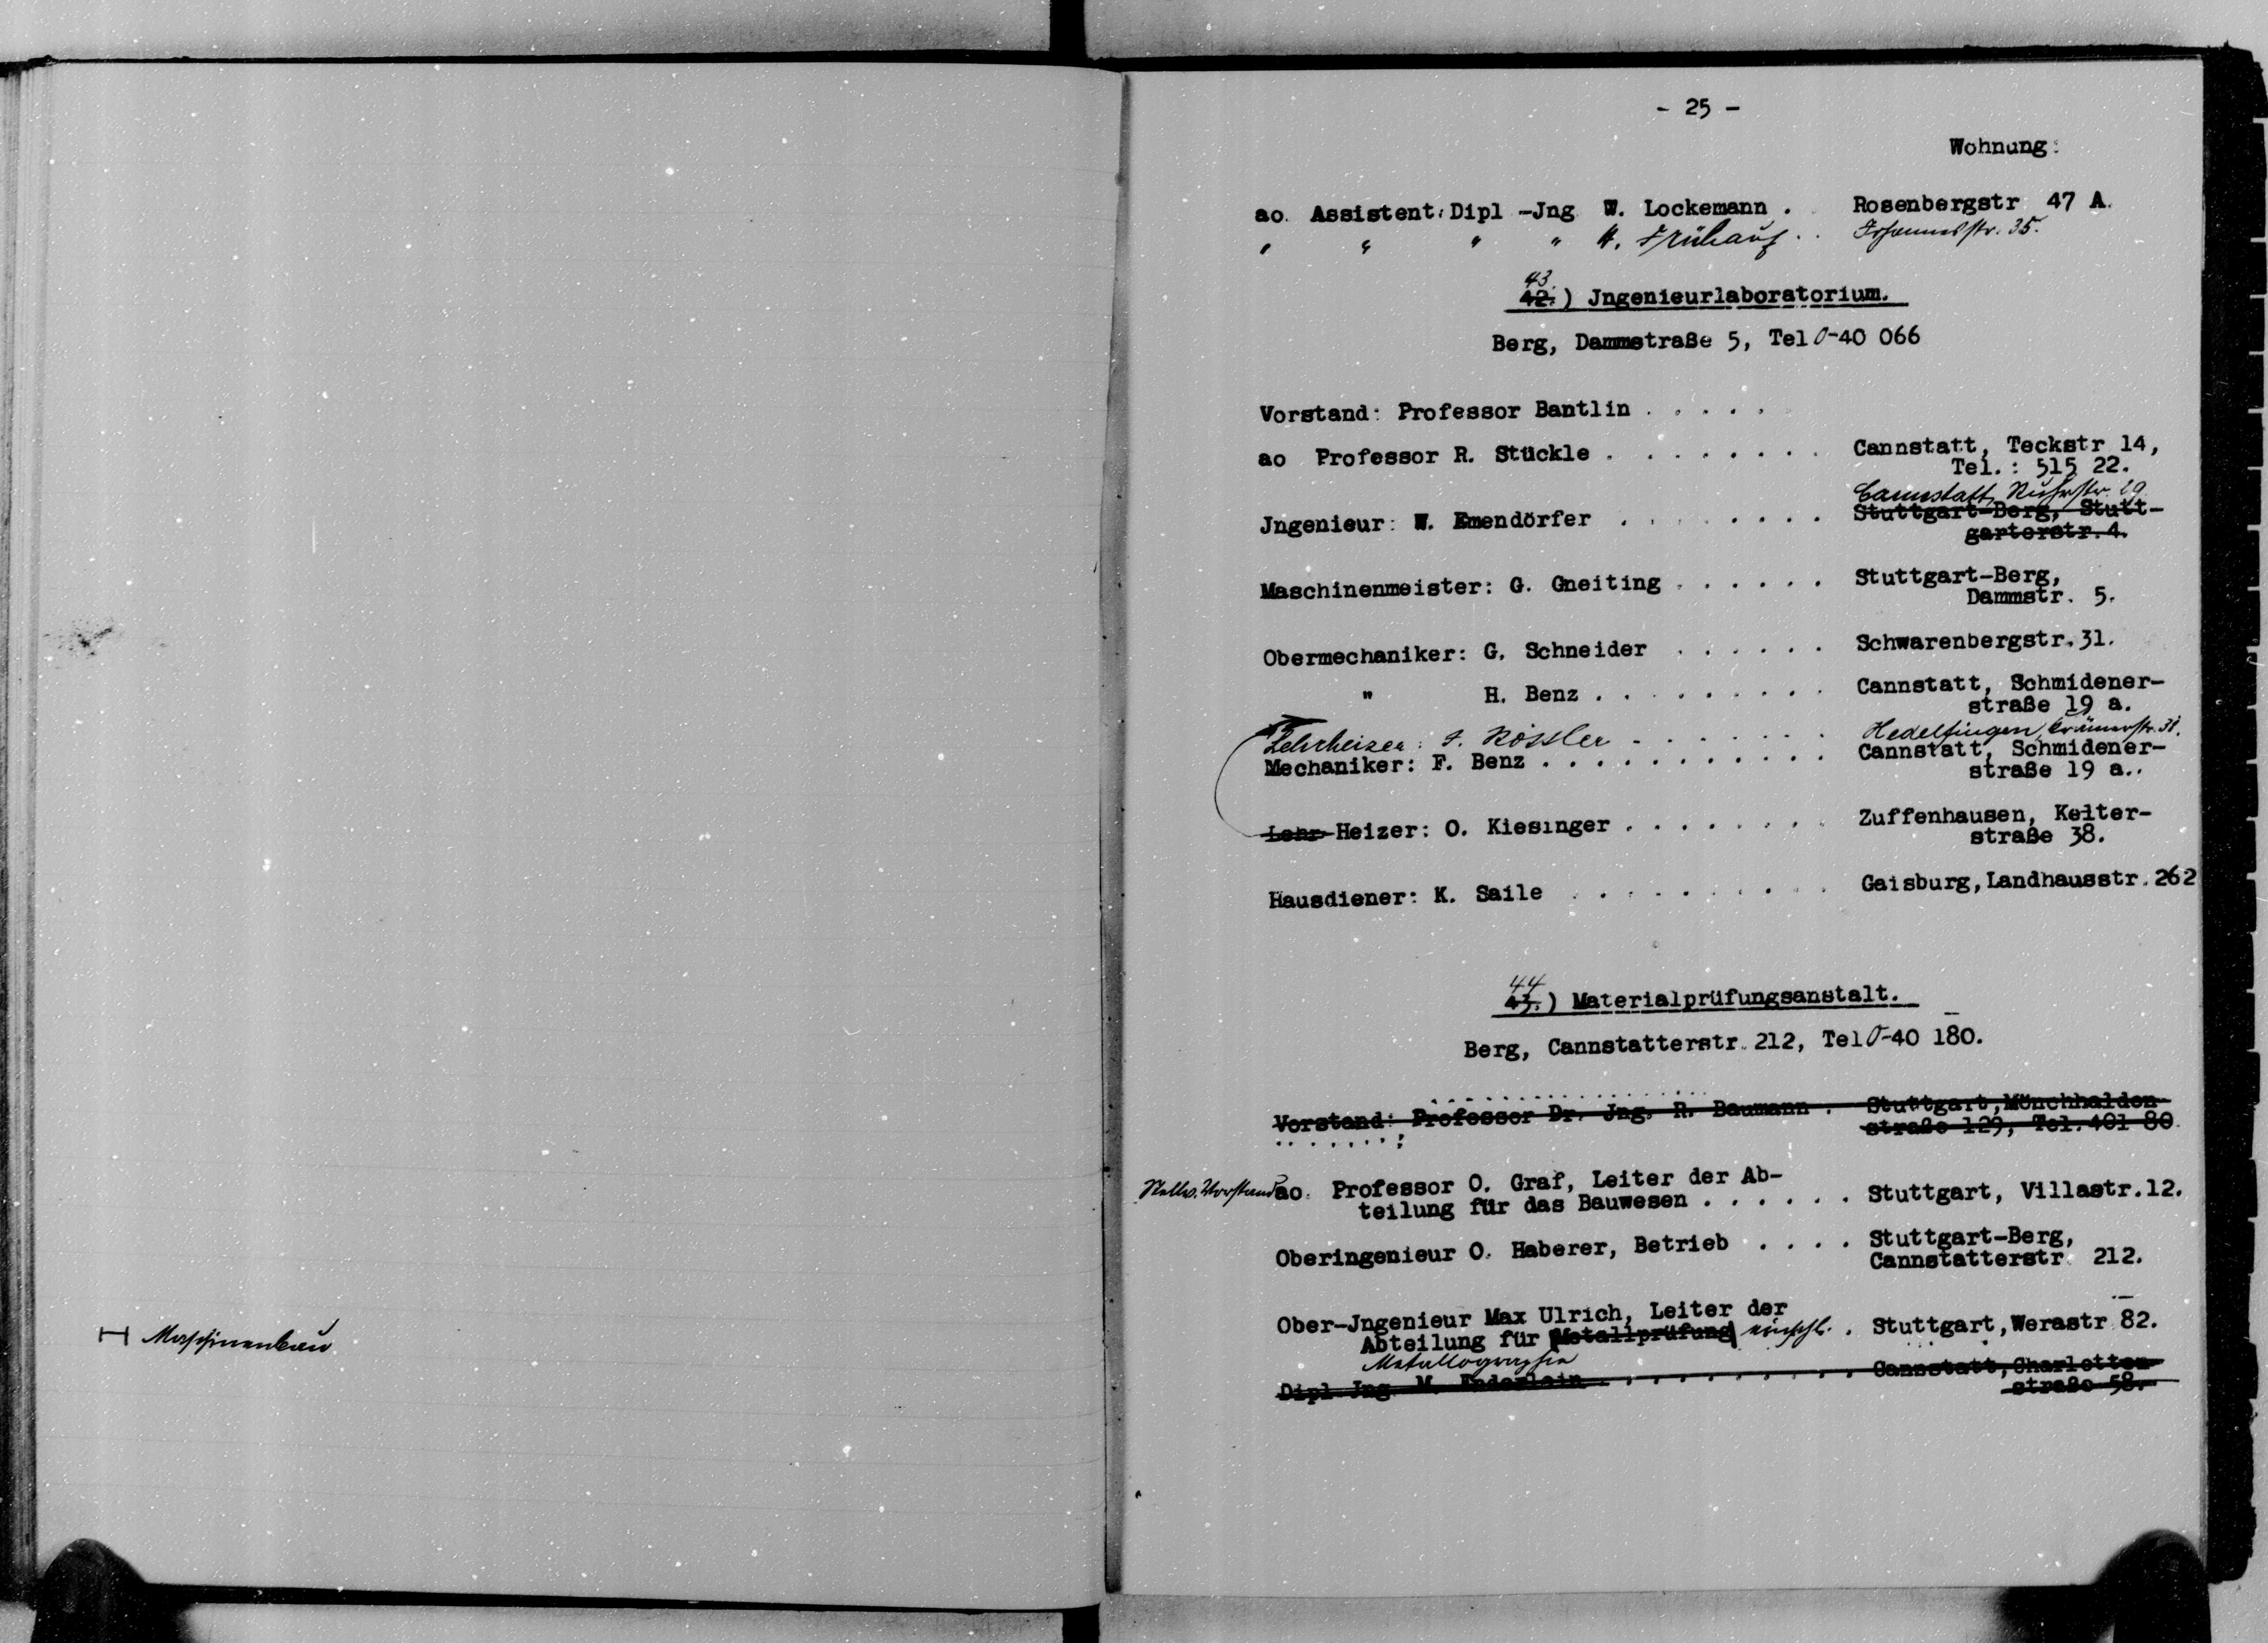 Maschinenbau
- 25 -
Wohnung:
ao. Assistent: Dipl -Jng W. Lockemann . Rosenbergstr 47 A.
" " " " H. Frühauf . . Johannesstr. 35.
43.
42.) Jngenieurlaboratorium.
Berg, Dammstraße 5, Tel 0-40 066
Vorstand: Professor Bantlin . . . . .
ao Professor R. Stückle . . . . . . . . Cannstatt, Teckstr 14,
Tel.: 515 22.
Cannstatt,
Jngenieur: W. Emendörfer . . . . . . . . Stuttgart-Berg, Stutt-
garterstr. 4.
Maschinenmeister: G. Gneiting . . . . . . Stuttgart-Berg,
Dammstr. 5.
Obermechaniker: G. Schneider . . . . . . Schwarenbergstr. 31.
" H. Benz . . . . . . . . . Cannstatt, Schmidener-
straße 19 a.
Lehrheizer: F. Rössler . . . . . . . Hedelfingen,
Mechaniker: F. Benz . . . . . . . . . . . Cannstatt, Schmidener-
straße 19 a..
Lehr-Heizer: O. Kiesinger . . . . . . . . Zuffenhausen, Kelter-
straße 38.
Hausdiener: K. Saile . . . . . . . . . . Gaisburg, Landhausstr. 262
44
43.) Materialprüfungsanstalt.
Berg, Cannstatterstr. 212, Tel 0-40 180.
Vorstand: Professor Dr. Jng. R. Baumann . Stuttgart, Mönchhalden-
straße 129, Tel. 401 80.
Stellv. Vorstand ao. Professor O. Graf, Leiter der Ab-
teilung für das Bauwesen . . . . . . Stuttgart, Villastr. 12.
Oberingenieur O. Haberer, Betrieb . . . . Stuttgart-Berg,
Cannstatterstr 212.
Ober-Jngenieur Max Ulrich, Leiter der
Abteilung für Metallprüfung einschl. . Stuttgart, Werastr 82.
Metallographie
Dipl. Jng. M. Enderlein . . . . . . . . . Cannstatt, Charlotten-
straße 58.